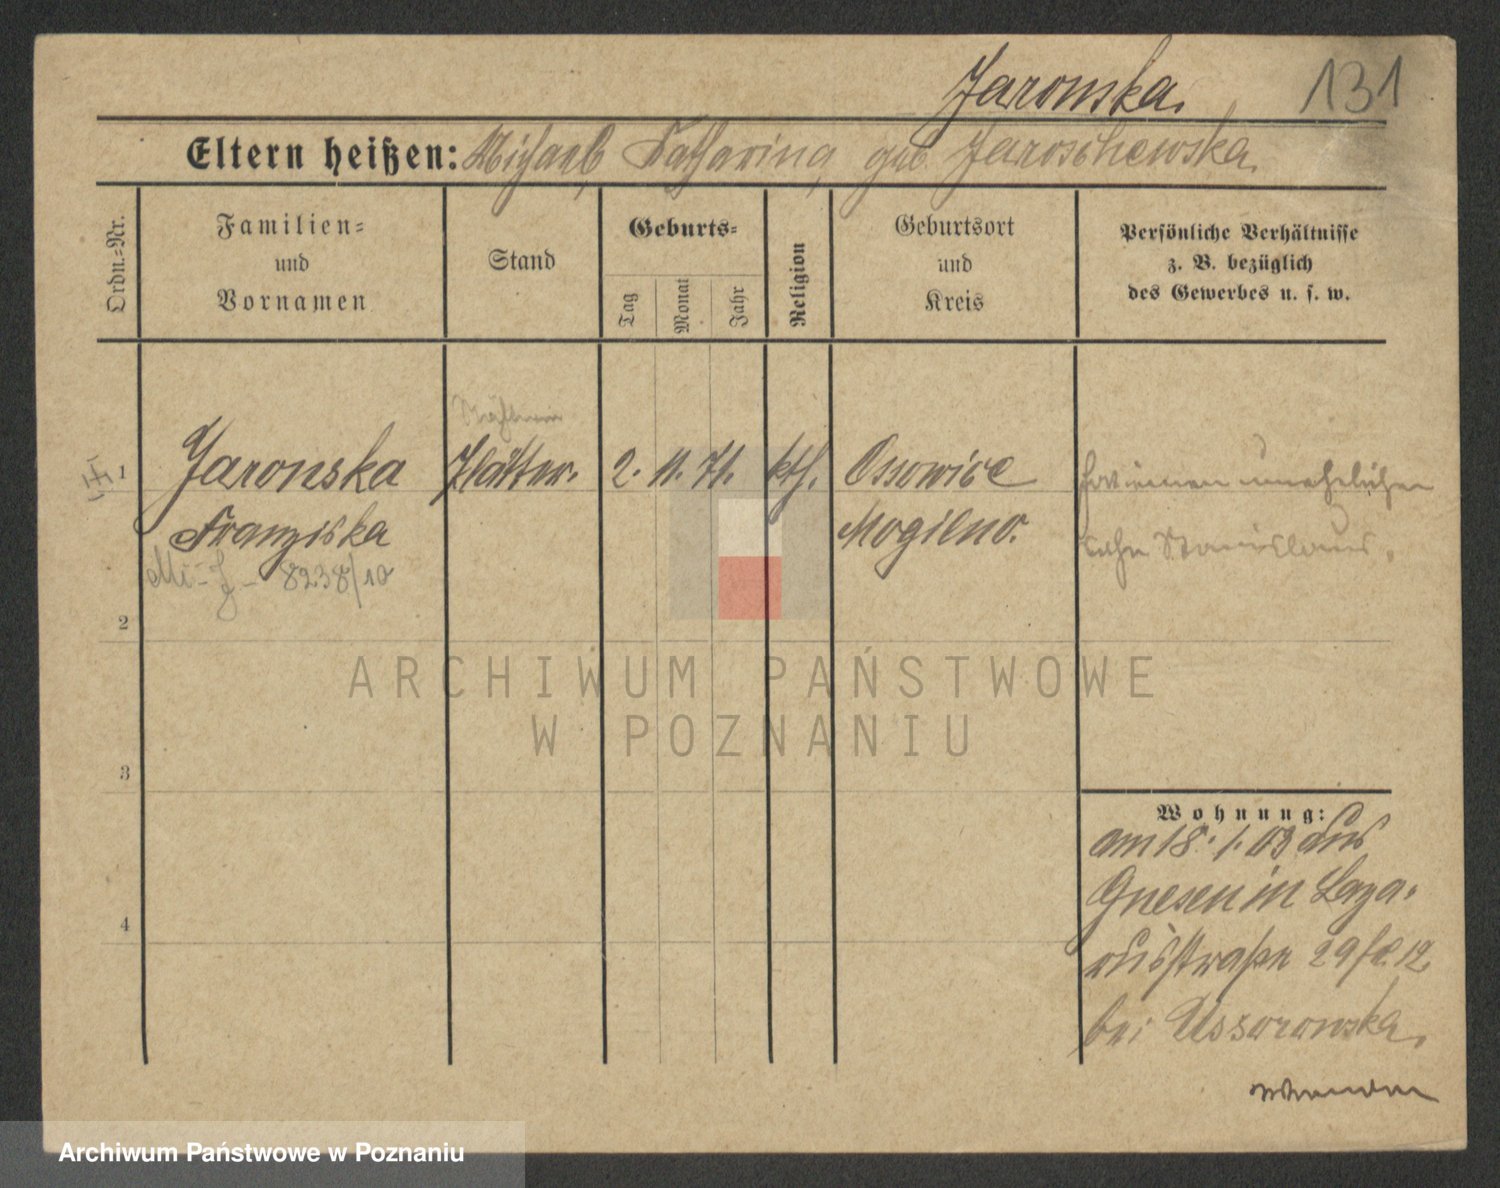 Jaronska.
131
Eltern heißen: Michael, Katharina geb. Jaroschewska.
Ordn.=Nr.
Familien=
und
Vornamen
Stand
Geburts=
Tag
Monat
Jahr
Religion
Geburtsort
und
Kreis
Persönliche Verhältnisse
z. B. bezüglich
des Gewerbes u. s. w.
1
Jaronska
Franziska
Plätter.
2. 11. 71.
kth.
Ossowice
Mogilno.
hat einen unehelichen
Sohn Stanislaus.
8238/10
2
3
4
Wohnung:
am 18. 1. 03 aus
Gnesen in Laza-
russtraße 29
bei
wenden
ARCHIWUM PAŃSTWOWE
W POZNANIU
Archiwum Państwowe w Poznaniu